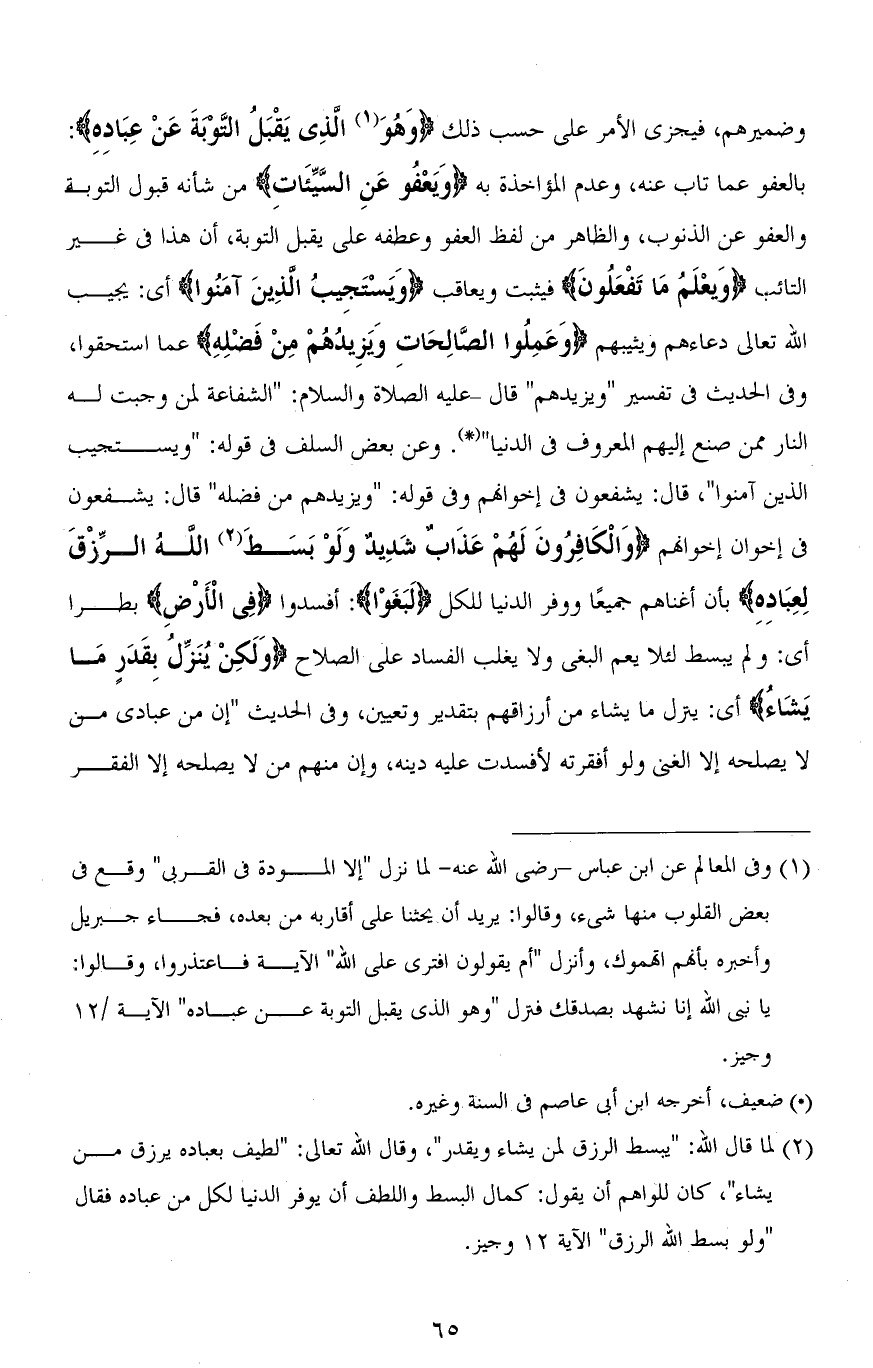 وضميرهم، فيجزى الأمر على حسب ذلك ﴿وَهُوَ(١) الَّذِى يَقْبَلُ التَّوْبَةَ عَنْ عِبَادِهِ﴾:
بالعفو عما تاب عنه، وعدم المؤاخذة به ﴿وَيَعْفُو عَنِ السَّيِّئَاتِ﴾ من شأنه قبول التوبة
والعفو عن الذنوب، والظاهر من لفظ العفو وعطفه على يقبل التوبة، أن هذا فى غير
التائب ﴿وَيَعْلَمُ مَا تَفْعَلُونَ﴾ فيثبت ويعاقب ﴿وَيَسْتَجِيبُ الَّذِينَ آمَنُوا﴾ أى: يجيب
الله تعالى دعاءهم ويثيبهم ﴿وَعَمِلُوا الصَّالِحَاتِ وَيَزِيدُهُمْ مِنْ فَضْلِهِ﴾ عما استحقوا،
وفى الحديث فى تفسير "ويزيدهم" قال -عليه الصلاة والسلام: "الشفاعة لمن وجبت له
النار ممن صنع إليهم المعروف فى الدنيا"(*). وعن بعض السلف فى قوله: "ويستجيب
الذين آمنوا"، قال: يشفعون فى إخوانهم وفى قوله: "ويزيدهم من فضله" قال: يشفعون
فى إخوان إخوانهم ﴿وَالْكَافِرُونَ لَهُمْ عَذَابٌ شَدِيدٌ وَلَوْ بَسَطَ(٢) اللَّهُ الرِّزْقَ
لِعِبَادِهِ﴾ بأن أغناهم جميعًا ووفر الدنيا للكل ﴿لَبَغَوْا﴾: أفسدوا ﴿فِي الْأَرْضِ﴾ بطرا
أى: ولم يبسط لئلا يعم البغى ولا يغلب الفساد على الصلاح ﴿وَلَكِنْ يُنَزِّلُ بِقَدَرٍ مَا
يَشَاءُ﴾ أى: ينزل ما يشاء من أرزاقهم بتقدير وتعيين، وفى الحديث "إن من عبادى من
لا يصلحه إلا الغنى ولو أفقرته لأفسدت عليه دينه، وإن منهم من لا يصلحه إلا الفقر
(١) وفى المعالم عن ابن عباس -رضى الله عنه- لما نزل "إلا المودة فى القربى" وقع فى
بعض القلوب منها شىء، وقالوا: يريد أن يحثنا على أقاربه من بعده، فجاء جبريل
وأخبره بأنهم اتهموك، وأنزل "أم يقولون افترى على الله" الآية فاعتذروا، وقالوا:
يا نبى الله إنا نشهد بصدقك فنزل "وهو الذى يقبل التوبة عن عباده" الآية /١٢
وجيز.
(*) ضعيف، أخرجه ابن أبى عاصم فى السنة وغيره.
(٢) لما قال الله: "يبسط الرزق لمن يشاء ويقدر"، وقال الله تعالى: "لطيف بعباده يرزق من
يشاء"، كان للواهم أن يقول: كمال البسط واللطف أن يوفر الدنيا لكل من عباده فقال
"ولو بسط الله الرزق" الآية ١٢ وجيز.
٦٥